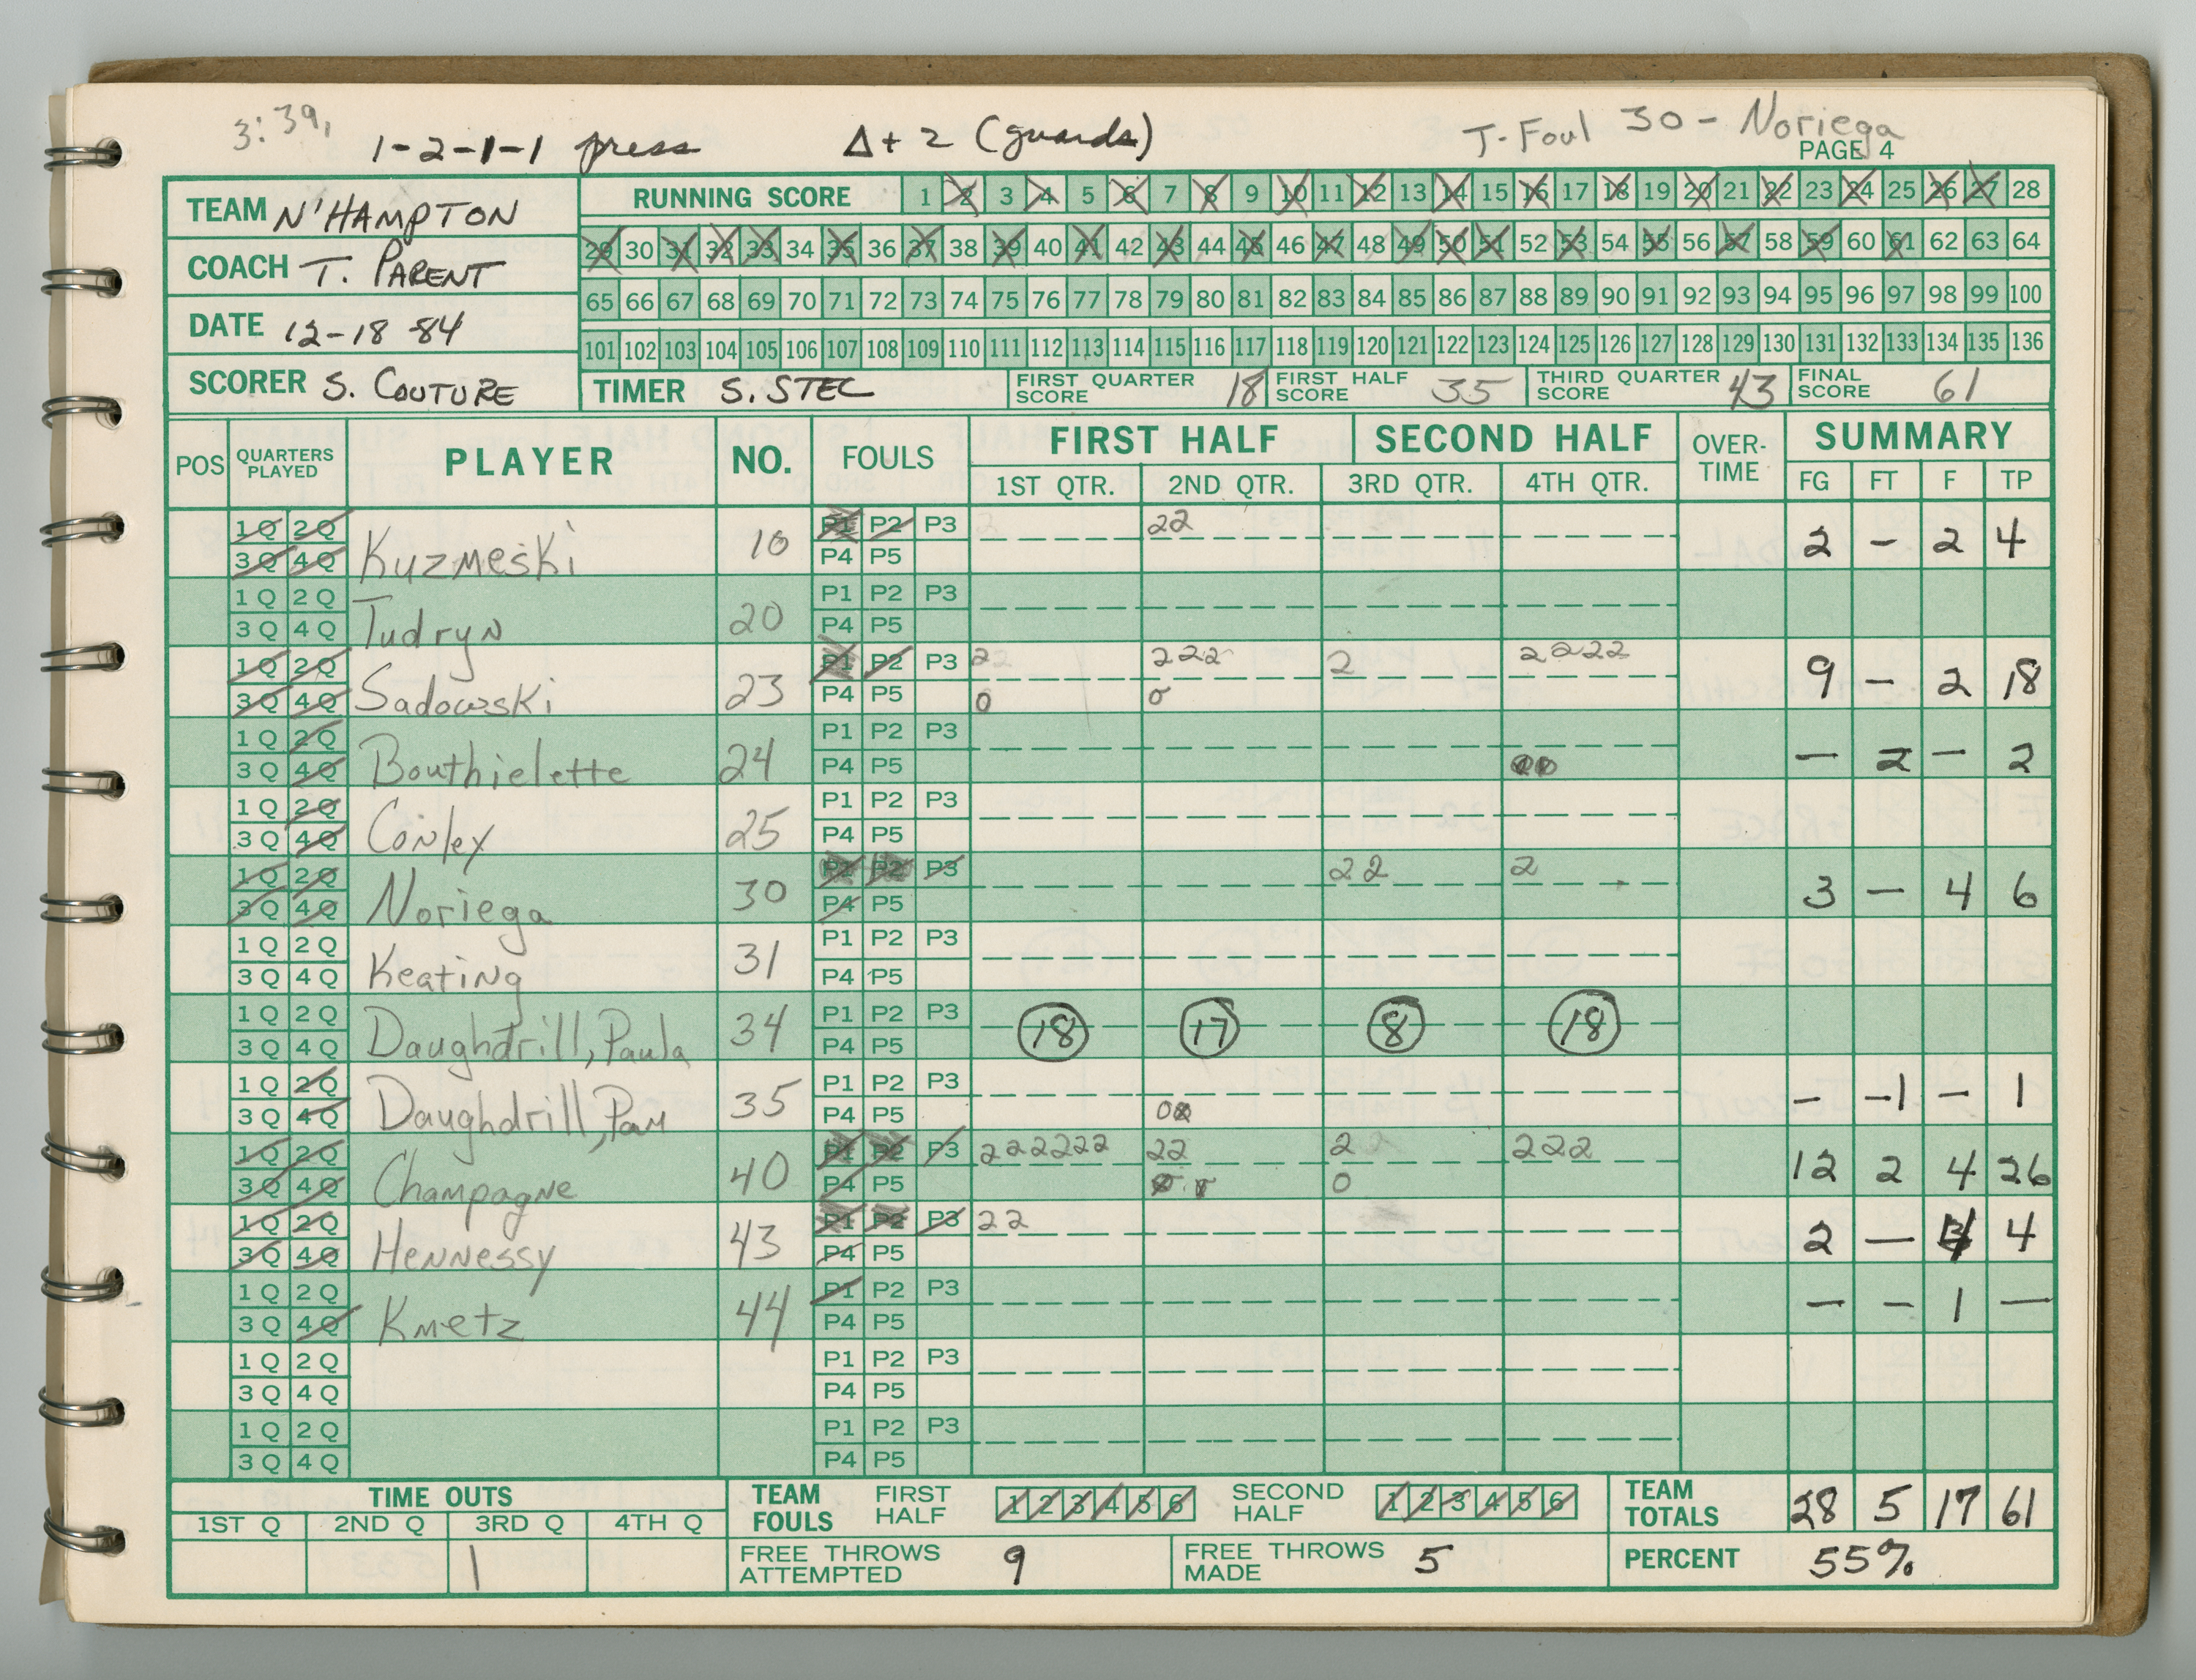 3:39,
1-2-1-1 press Δ+2 (guards) T-Foul 30 - Noriega
PAGE 4
TEAM N'HAMPTON
COACH T. PARENT
DATE 12-18-84
SCORER S. COUTURE
RUNNING SCORE 1 2 3 4 5 6 7 8 9 10 11 12 13 14 15 16 17 18 19 20 21 22 23 24 25 26 27 28
29 30 31 32 33 34 35 36 37 38 39 40 41 42 43 44 45 46 47 48 49 50 51 52 53 54 55 56 57 58 59 60 61 62 63 64
65 66 67 68 69 70 71 72 73 74 75 76 77 78 79 80 81 82 83 84 85 86 87 88 89 90 91 92 93 94 95 96 97 98 99 100
101 102 103 104 105 106 107 108 109 110 111 112 113 114 115 116 117 118 119 120 121 122 123 124 125 126 127 128 129 130 131 132 133 134 135 136
TIMER S. STEC FIRST QUARTER SCORE 18 FIRST HALF SCORE 35 THIRD QUARTER SCORE 43 FINAL SCORE 61
POS QUARTERS PLAYED PLAYER NO. FOULS FIRST HALF SECOND HALF OVER-TIME SUMMARY
1ST QTR. 2ND QTR. 3RD QTR. 4TH QTR. FG FT F TP
1Q 2Q P1 P2 P3 22
3Q 4Q Kuzmeski 10 P4 P5 2 - 2 4
1Q 2Q P1 P2 P3
3Q 4Q Tudryn 20 P4 P5
1Q 2Q P1 P2 P3 2 222 2 2222
3Q 4Q Sadowski 23 P4 P5 0 0 9 - 2 18
1Q 2Q P1 P2 P3
3Q 4Q Bouthielette 24 P4 P5 — 2 — 2
1Q 2Q P1 P2 P3
3Q 4Q Conley 25 P4 P5
1Q 2Q P1 P2 P3 22 2
3Q 4Q Noriega 30 P4 P5 3 — 4 6
1Q 2Q P1 P2 P3
3Q 4Q Keating 31 P4 P5
1Q 2Q P1 P2 P3
3Q 4Q Daughdrill, Paula 34 P4 P5 18 17 8 18
1Q 2Q P1 P2 P3
3Q 4Q Daughdrill, Pam 35 P4 P5 - -1 - 1
1Q 2Q P1 P2 P3 222222 22 2 222
3Q 4Q Champagne 40 P4 P5 0 12 2 4 26
1Q 2Q P1 P2 P3 22
3Q 4Q Hennessy 43 P4 P5 2 — 4 4
1Q 2Q P1 P2 P3
3Q 4Q Kmetz 44 P4 P5 — - 1 —
1Q 2Q P1 P2 P3
3Q 4Q P4 P5
1Q 2Q P1 P2 P3
3Q 4Q P4 P5
TIME OUTS TEAM FOULS FIRST HALF 1 2 3 4 5 6 SECOND HALF 1 2 3 4 5 6 TEAM TOTALS 28 5 17 61
1ST Q 2ND Q 3RD Q 4TH Q
1 FREE THROWS ATTEMPTED 9 FREE THROWS MADE 5 PERCENT 55%